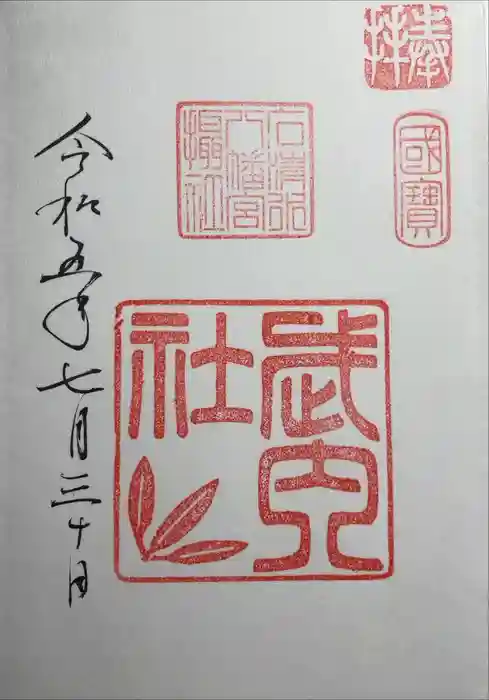 奉拝
國寶
石清水
八幡宮
摂社
武内
社
令和五年七月三十日